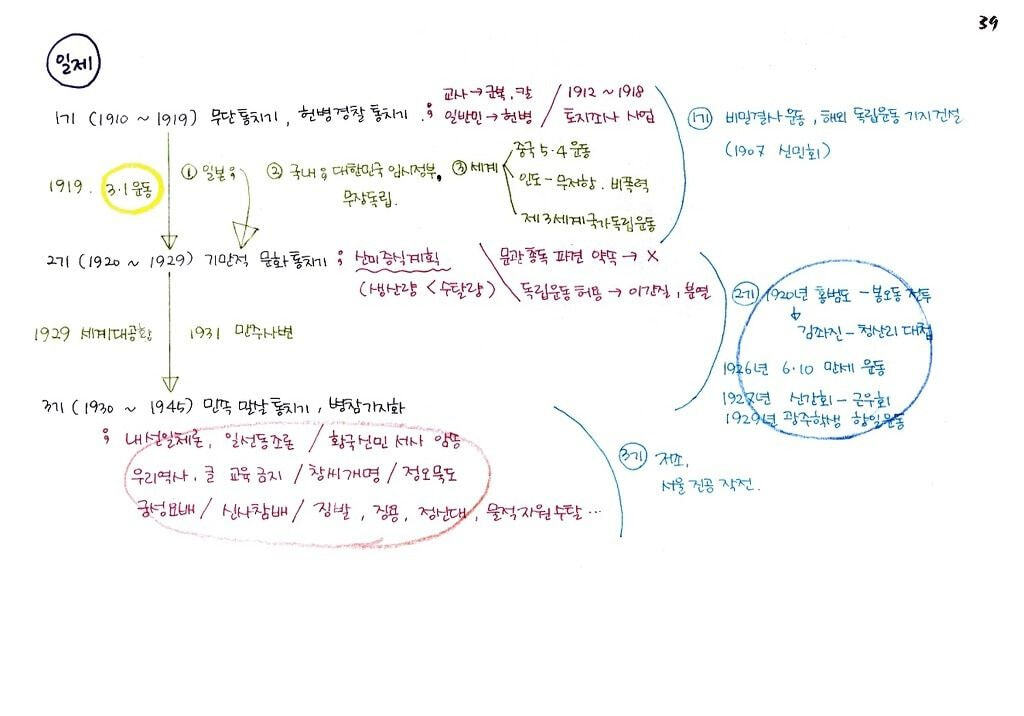 39
일제
교사 → 군복, 칼 / 1912 ~ 1918
1기 (1910 ~ 1919) 무단통치기, 헌병경찰 통치기 ; 일반인 → 헌병 / 토지조사 사업
1기 비밀결사 운동, 해외 독립운동 기지 건설
(1907 신민회)
1919. 3·1 운동
① 일본 ;
② 국내 ; 대한민국 임시정부,
무장독립.
③ 세계
중국 5·4 운동
인도 - 무저항. 비폭력
제3세계 국가 독립운동
2기 (1920 ~ 1929) 기만적 문화통치기 ; 산미증식계획
(생산량 < 수탈량)
문관총독 파견 약속 → X
독립운동 허용 → 이간질, 분열
2기 1920년 홍범도 - 봉오동 전투
김좌진 - 청산리 대첩
1926년 6·10 만세 운동
1927년 신간회 - 근우회
1929년 광주학생 항일운동
1929 세계대공황
1931 만주사변
3기 (1930 ~ 1945) 민족 말살 통치기, 병참기지화
; 내선일체론, 일선동조론 / 황국신민 서사 암송
우리역사, 글 교육 금지 / 창씨개명 / 정오묵도
궁성요배 / 신사참배 / 징발, 징용, 정신대, 물적자원 수탈 …
3기 저조.
서울 진공 작전.